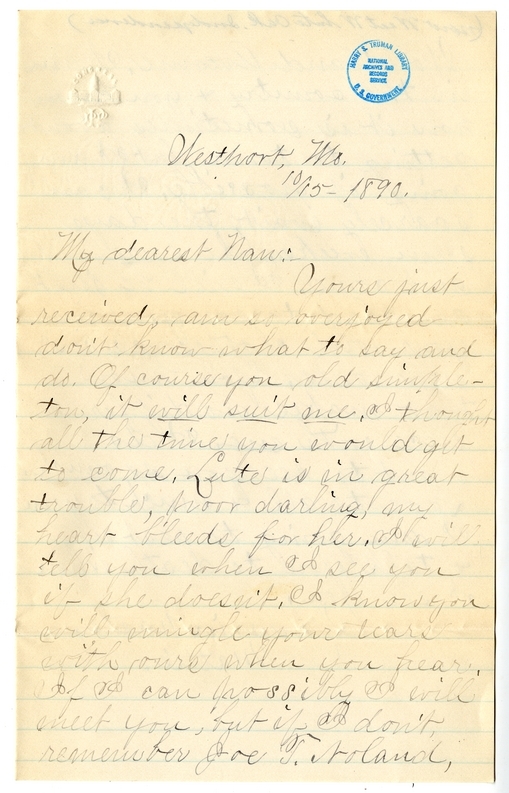 HARRY S. TRUMAN LIBRARY
NATIONAL
ARCHIVES AND
RECORDS
SERVICE
U.S. GOVERNMENT
Westport, Mo.
10/15-1890.
My dearest Nan:-
Yours just
received, am so overjoyed
don't know what to say and
do. Of course you old simple-
ton, it will suit me. I thought
all the time you would get
to come. Lute is in great
trouble, poor darling, my
heart bleeds for her. I will
tell you when I see you
if she doesn't. I know you
will mingle your tears
with ours when you hear.
If I can possibly I will
meet you, but if I don't,
remember Joe T. Noland,